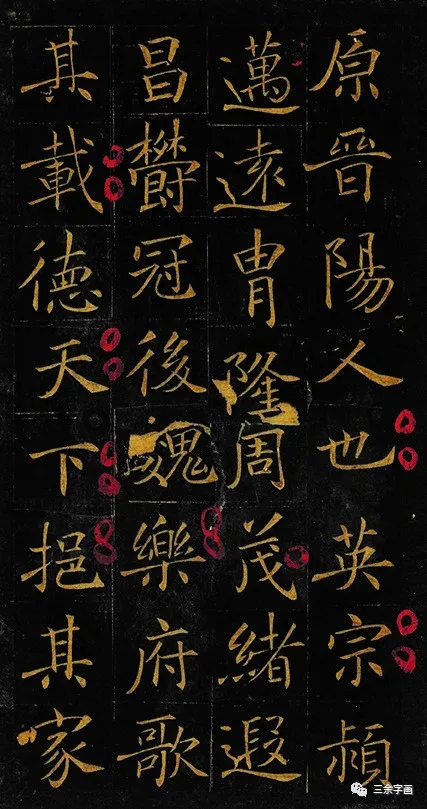 原晉陽人也英宗穎
邁遠冑隆周茂緒遐
昌欝冠後魏樂府歌
其載德天下挹其家
三余字画